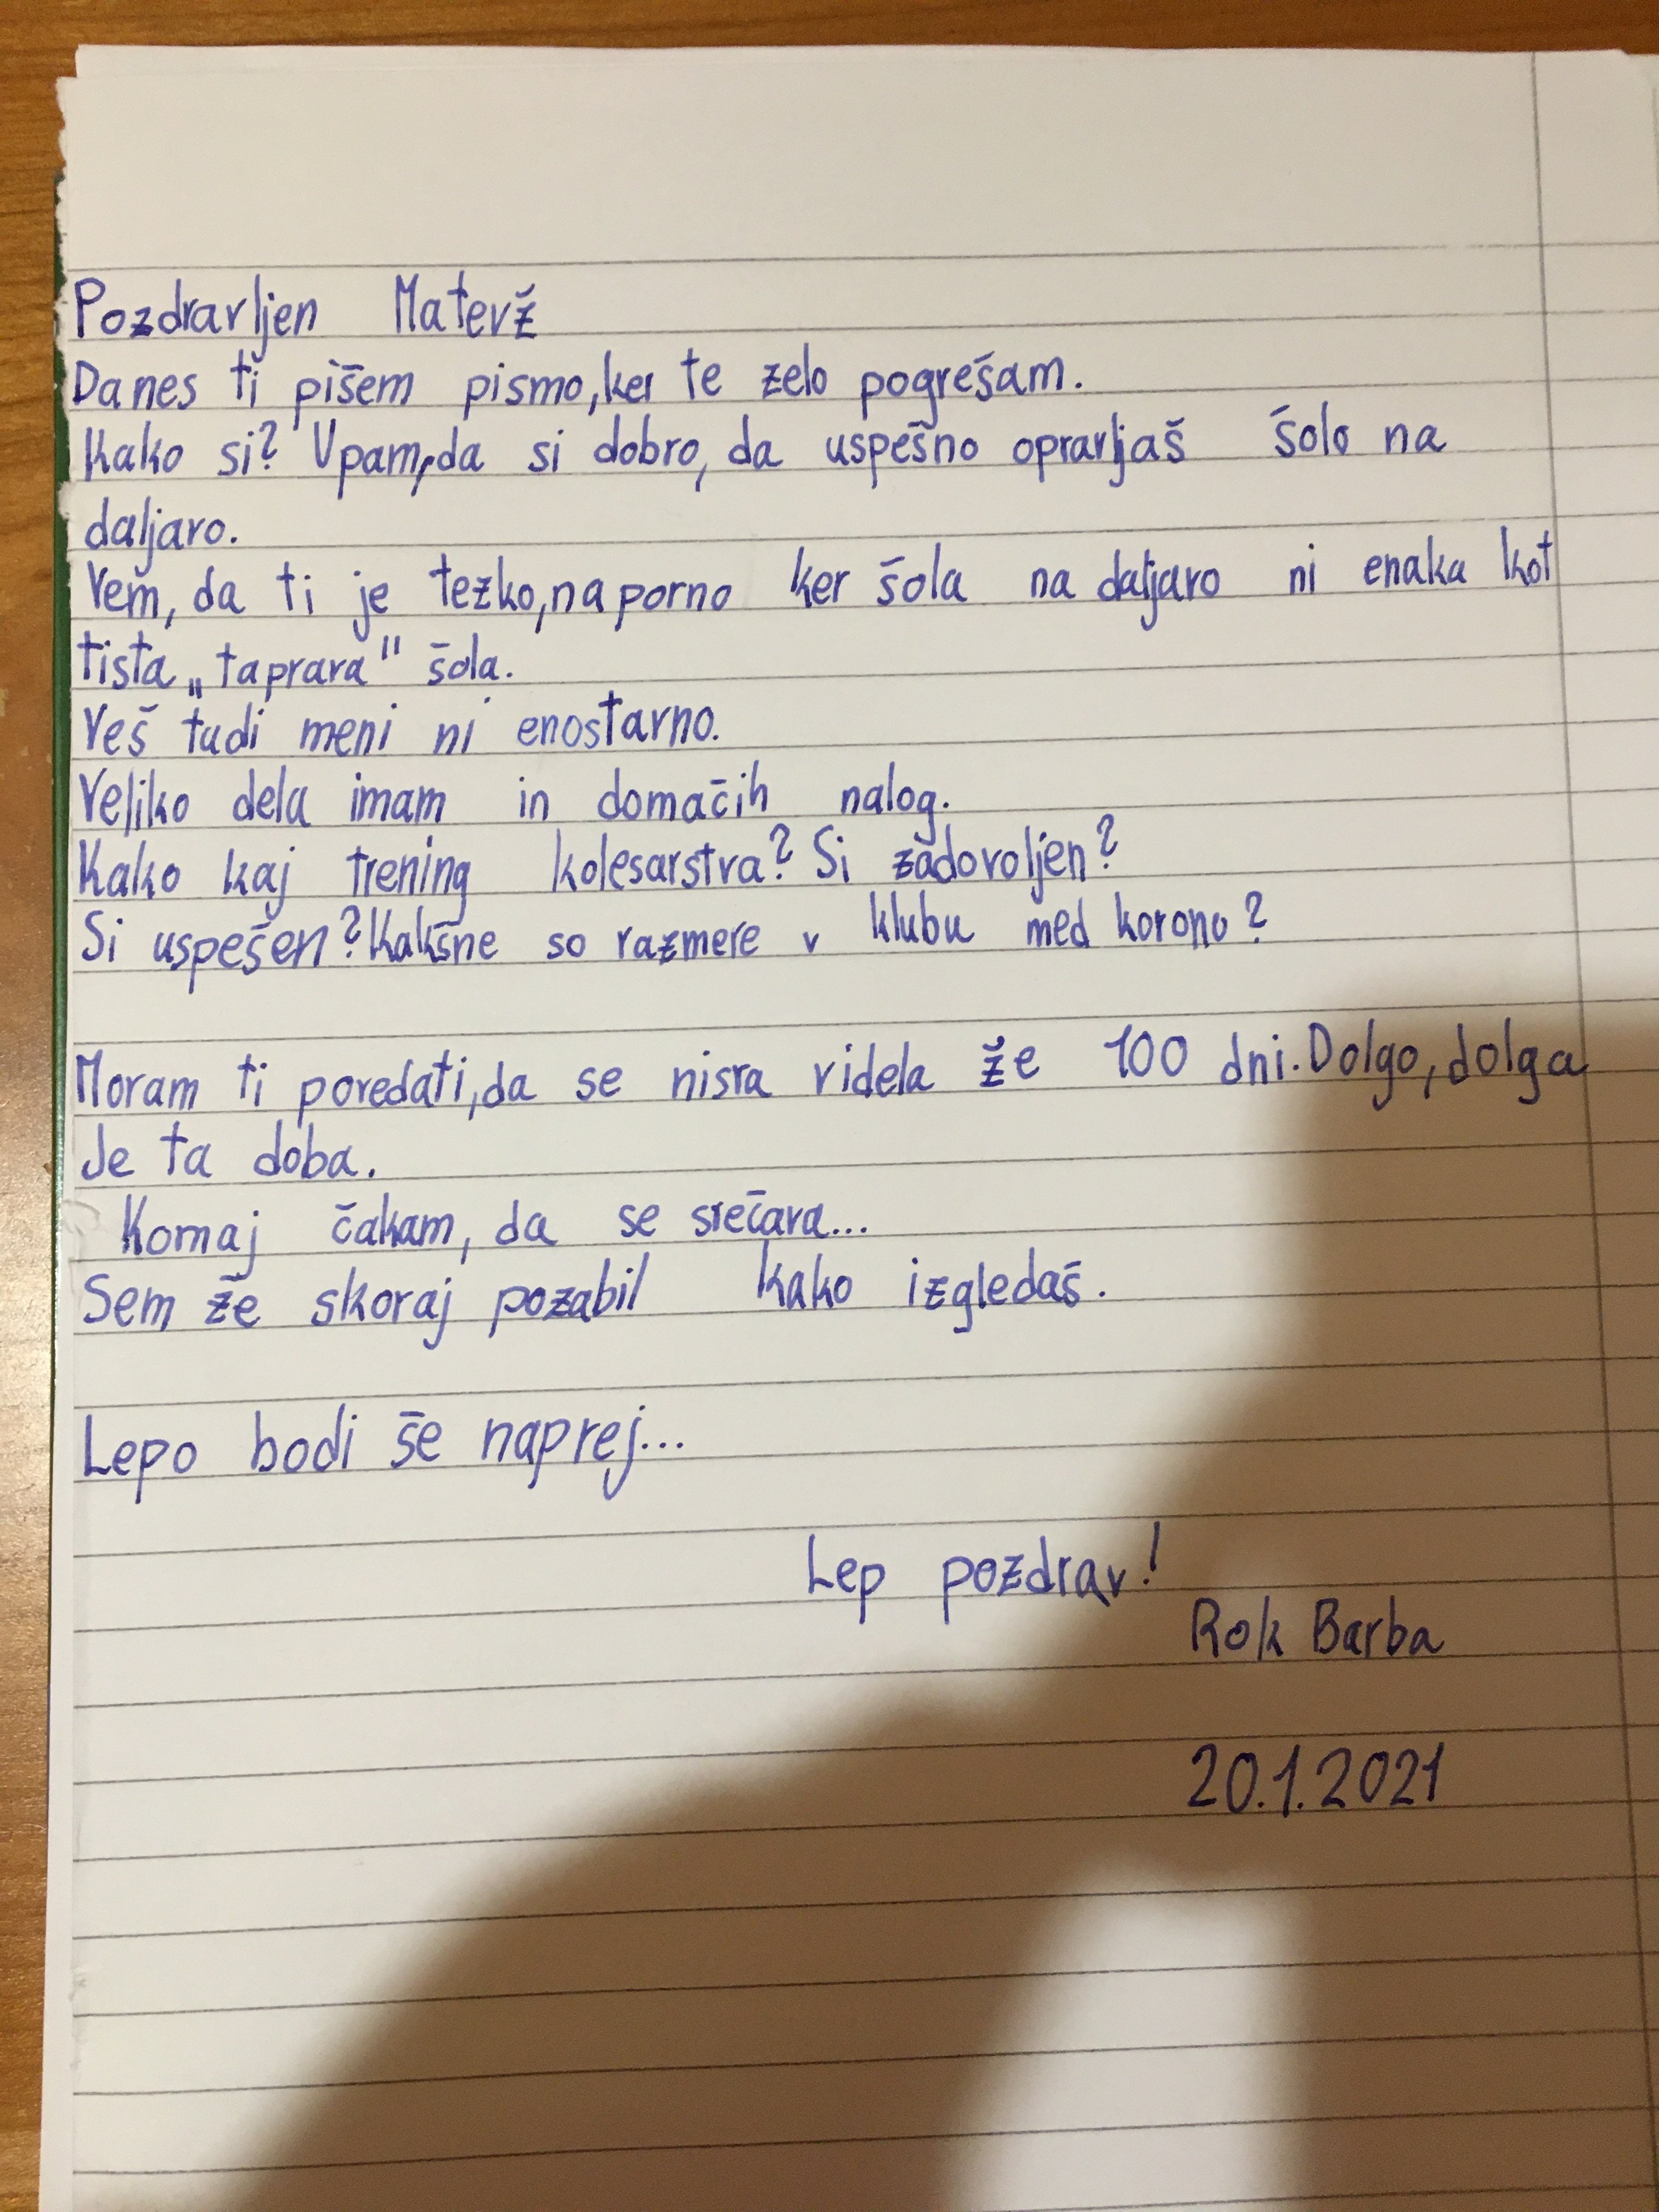 Pozdravljen Matevž
Danes ti pišem pismo,ker te zelo pogrešam.
Kako si? Upam,da si dobro, da uspešno opravljaš šolo na
daljavo.
Vem, da ti je težko,naporno ker šola na daljavo ni enaka kot
tista „taprava" šola.
Veš tudi meni ni enostavno.
Veliko dela imam in domačih nalog.
Kako kaj trening kolesarstva? Si zadovoljen?
Si uspešen? Kakšne so razmere v klubu med korono?
Moram ti povedati,da se nisva videla že 100 dni. Dolgo, dolga
Je ta doba.
Komaj čakam, da se srečava...
Sem že skoraj pozabil kako izgledaš.
Lepo bodi še naprej...
Lep pozdrav!
Rok Barba
20.1.2021